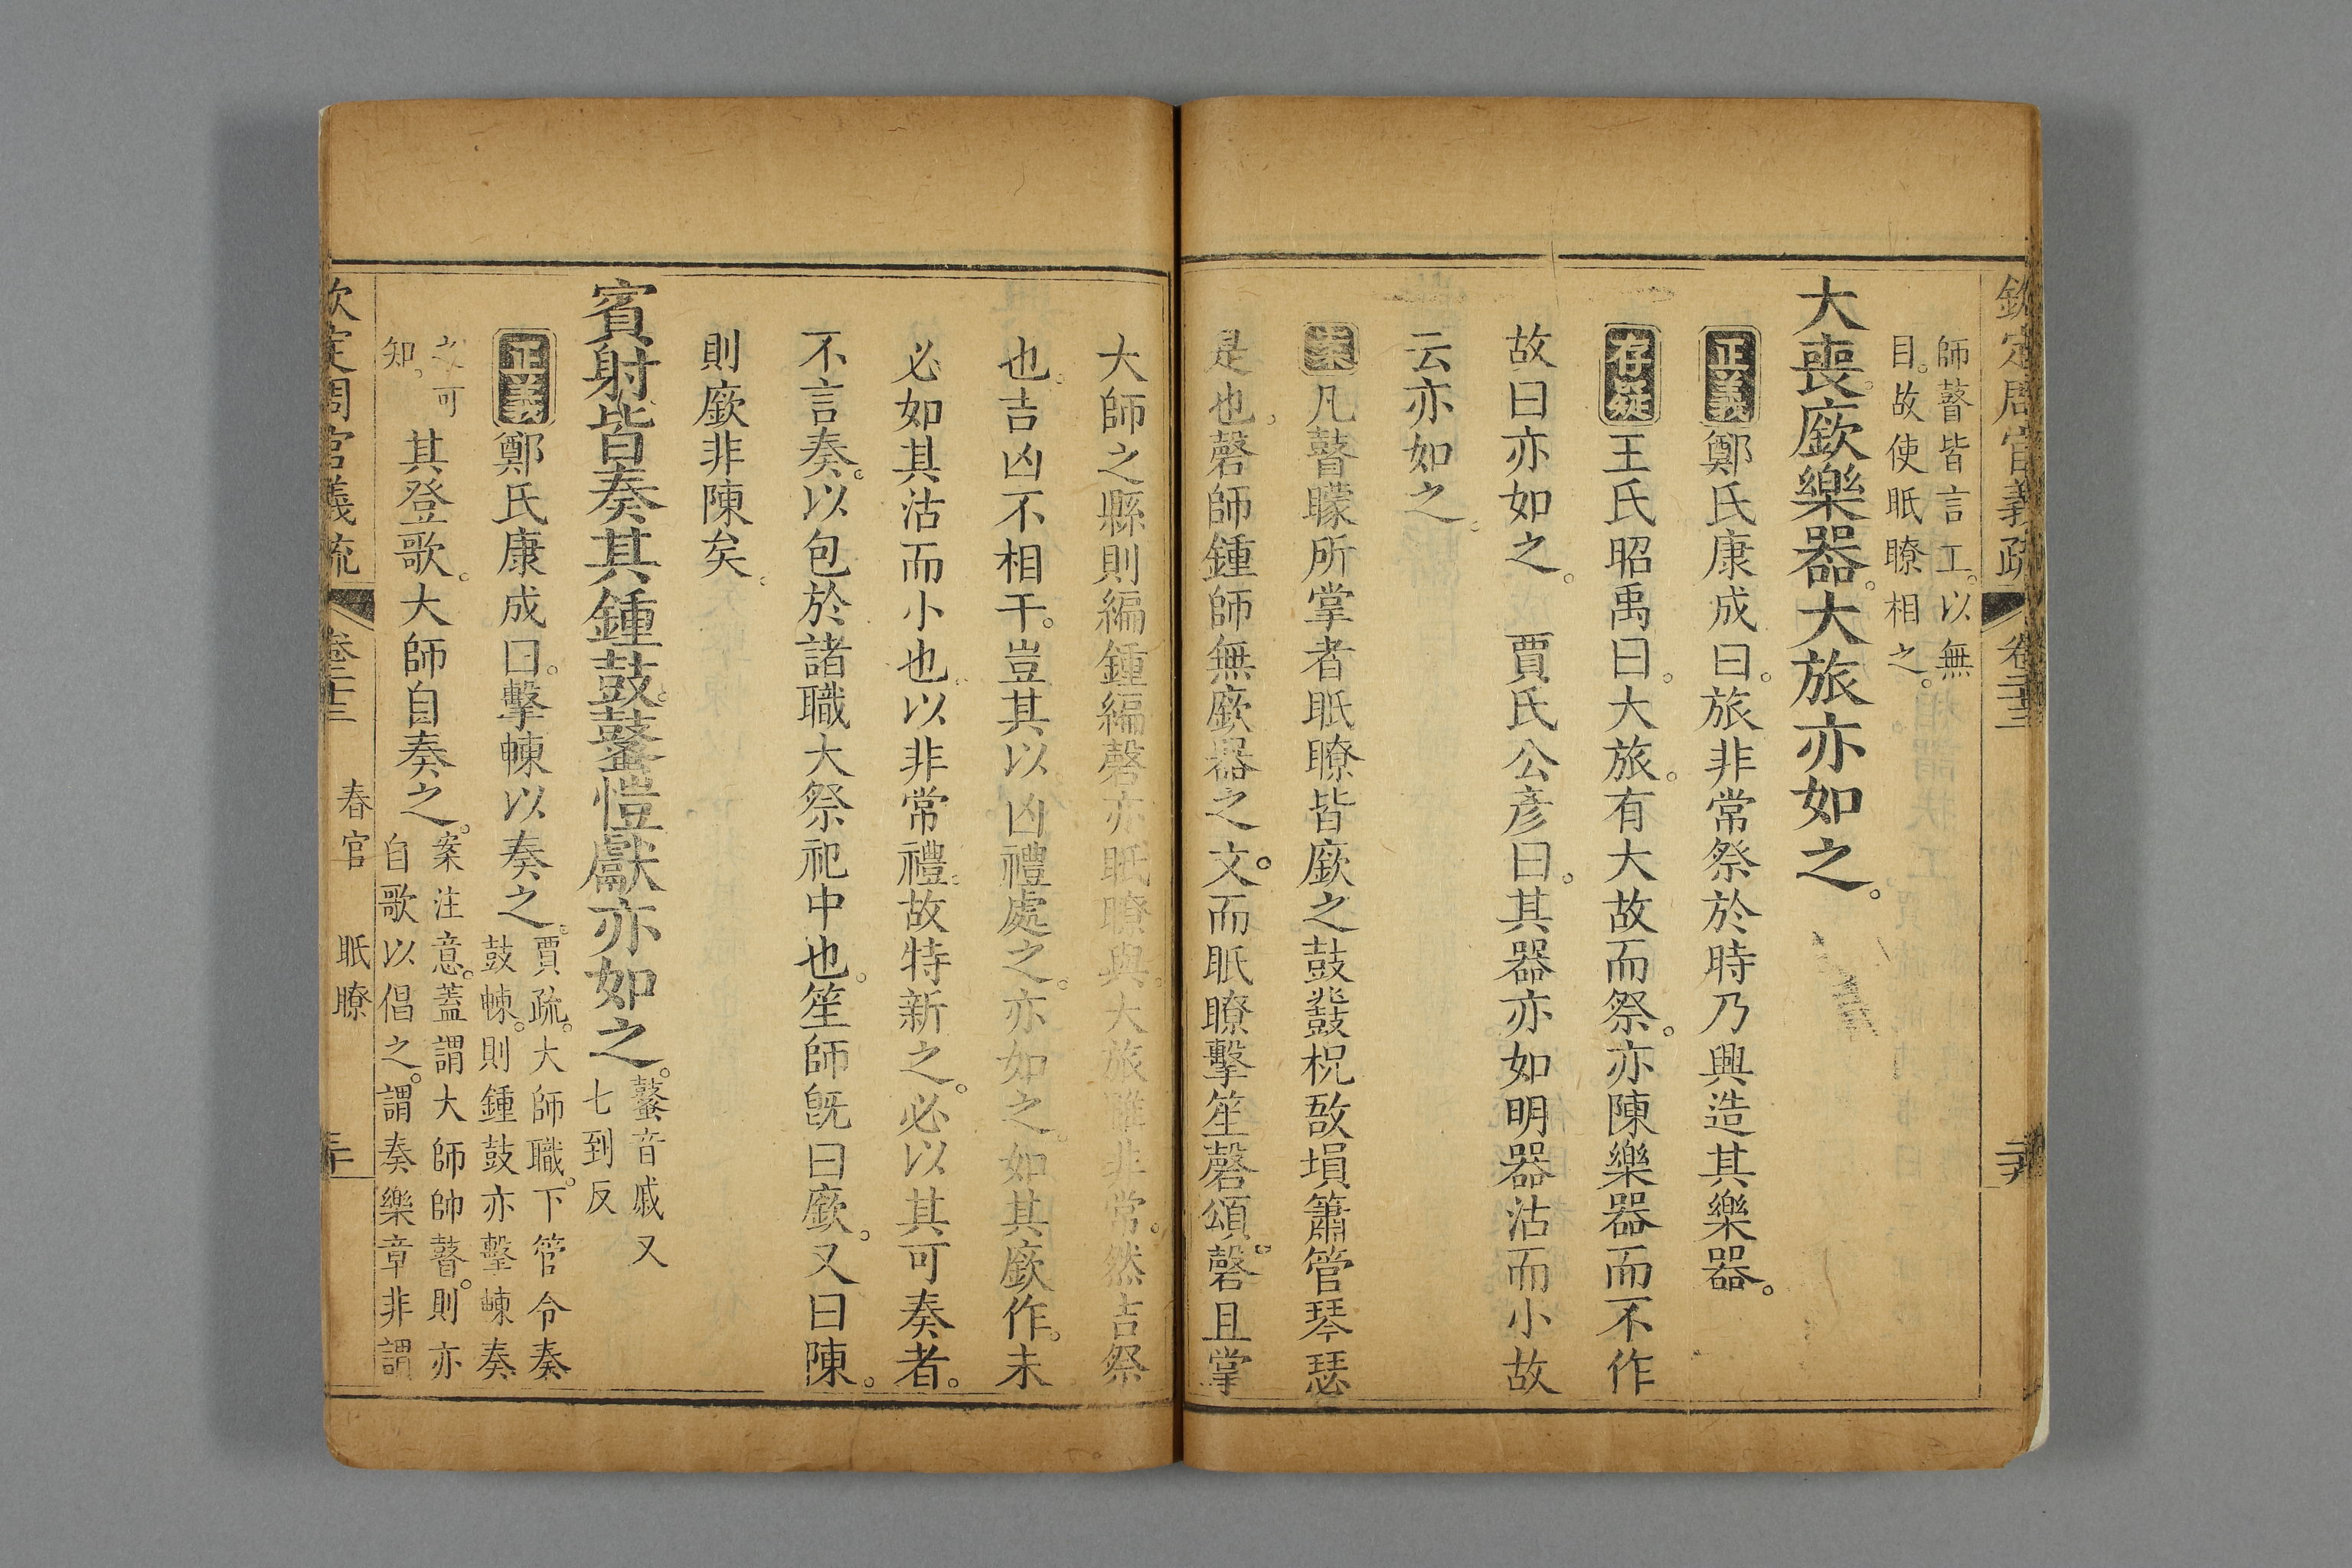 欽定周官義疏 卷二十三
師瞽皆言工。以無
目。故使眂瞭相之。
大喪廞樂器。大旅亦如之。
正義鄭氏康成曰。旅非常祭於時乃興造其樂器。
存疑王氏昭禹曰。大旅。有大故而祭。亦陳樂器而不作
故曰亦如之。 賈氏公彥曰。其器亦如明器沽而小故
云亦如之。
案凡瞽矇所掌者眂瞭皆廞之鼓鼗柷敔塤簫管琴瑟
是也。磬師鍾師無廞器之文。而眂瞭擊笙磬頌磬。且掌
大師之縣則編鍾編磬亦眂瞭與。大旅雖非常。然吉祭
也。吉凶不相干。豈其以凶禮處之。亦如之。如其廞作。未
必如其沽而小也。以非常禮。故特新之。必以其可奏者。
不言奏。以包於諸職大祭祀中也。笙師旣曰廞。又曰陳。
則廞非陳矣。
賓射皆奏其鍾鼓。鼜愷獻亦如之。
鼜音戚又
七到反
正義鄭氏康成曰。擊朄以奏之。
賈疏。大師職。下管令奏
鼓朄。則鍾鼓亦擊朄奏
之可
知。
其登歌。大師自奏之。
案注意。蓋謂大師帥瞽。則亦
自歌以倡之。謂奏樂章非謂
欽定周官義疏 卷二十三 春官 眂瞭